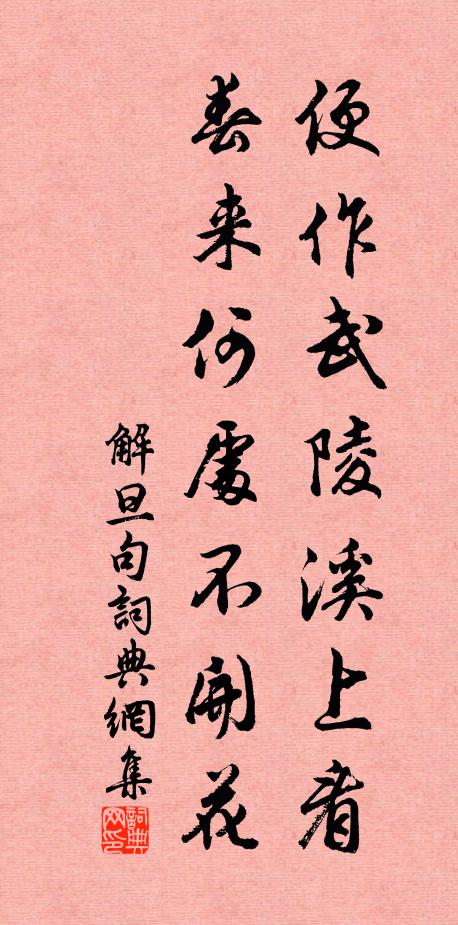 便作武陵溪上看
春来何處不開花
解旦句詞典網集
詞典网印